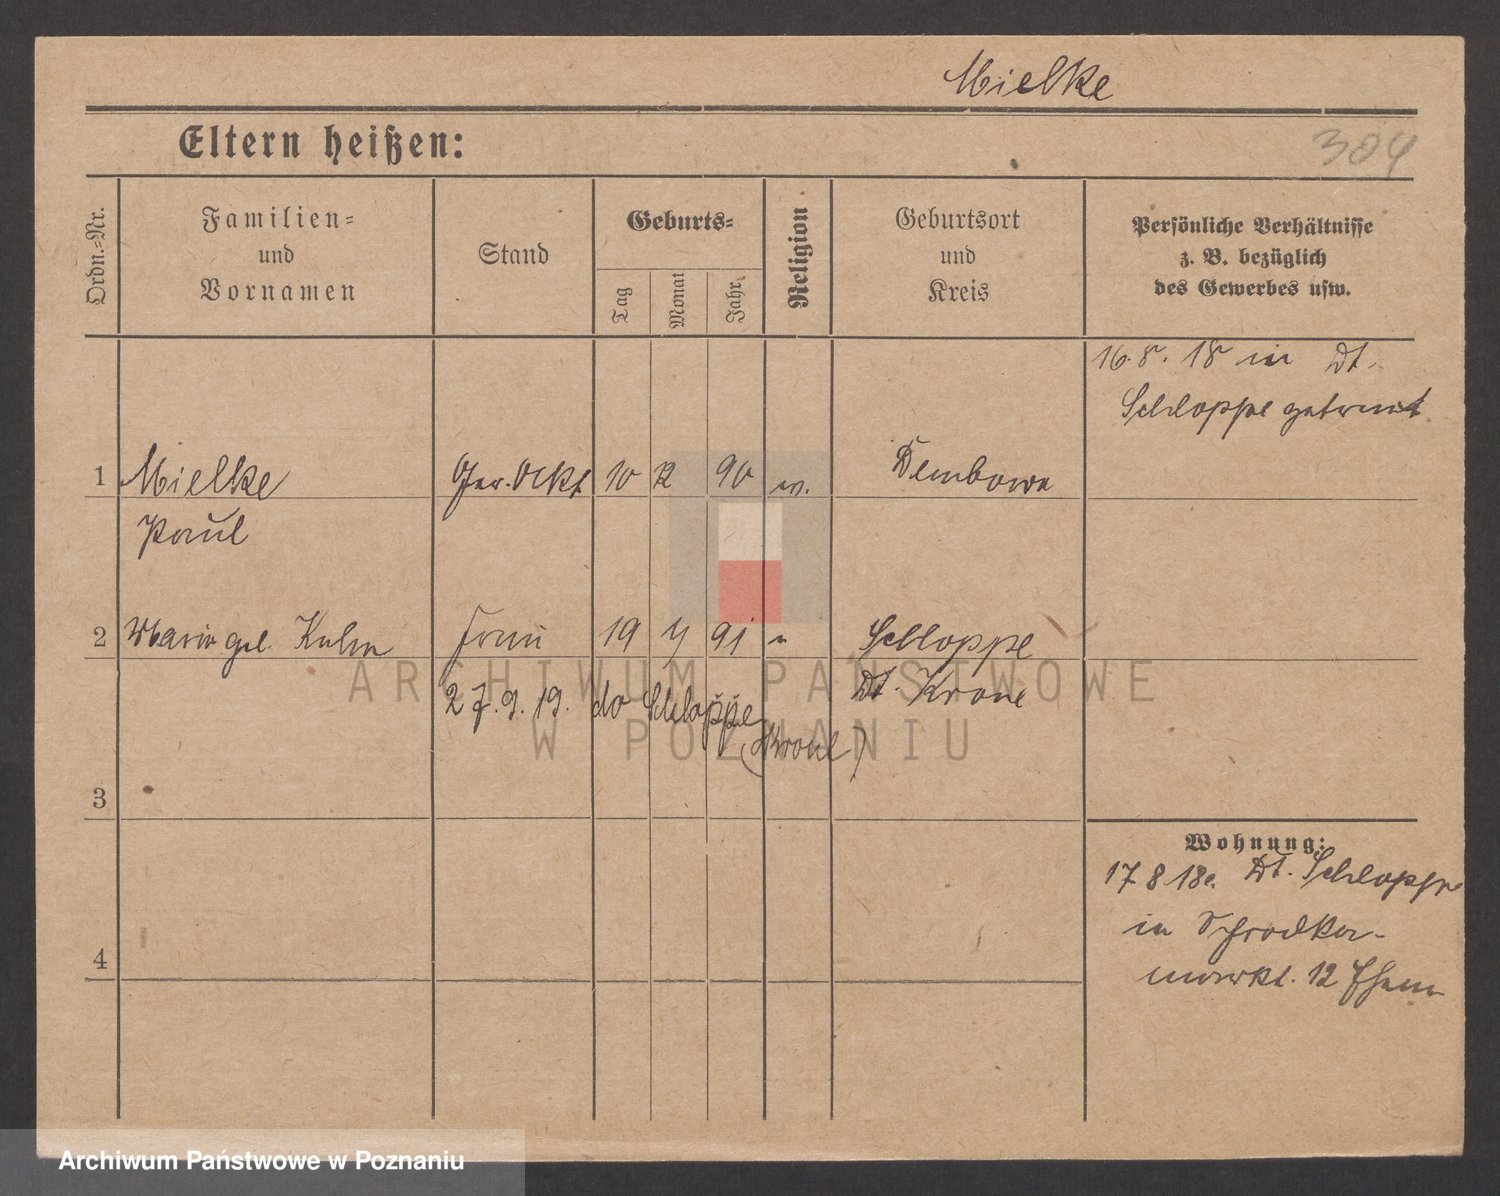 Mielke
Eltern heißen:
304
Ordn.-Nr.
Familien-
und
Vornamen
Stand
Geburts-
Tag
Monat
Jahr
Religion
Geburtsort
und
Kreis
Persönliche Verhältnisse
z. B. bezüglich
des Gewerbes usw.
16. 8. 18 in Dt.
Schloppe getraut
1 Mielke 10 90 Dembowa
Paul
2 Marie geb. Frau 19 91 Schloppe
Dt. Krone
27. 9. 19. do Schloppe
3
Wohnung:
17 8 18 Dt. Schloppe
in
markt. 12
4
ARCHIWUM PAŃSTWOWE
W POZNANIU
Archiwum Państwowe w Poznaniu